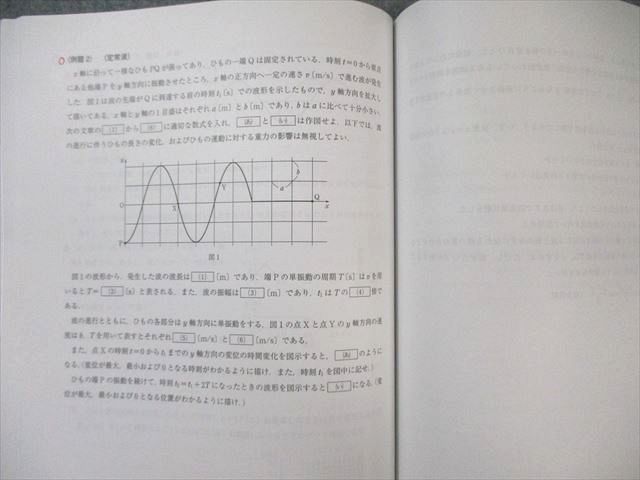 (例題2) (定常波)
x軸に沿って一様なひもPQが張ってあり、ひもの一端Qは固定されている。時刻t=0から原点
にある他端Pをy軸方向に振動させたところ、x軸の正方向へ一定の速さv〔m/s〕で進む波が発生
した。図1は波の先端がQに到達する前の時刻t₁〔s〕での波形を示したもので、y軸方向を拡大し
て描いてある。x軸とy軸の1目盛はそれぞれa〔m〕とb〔m〕であり、bはaに比べて十分小さい。
次の文章の (1) から (6) に適切な数式を入れ、 (あ) と (い) は作図せよ。以下では、波
の進行に伴うひもの長さの変化、およびひもの運動に対する重力の影響は無視してよい。
b
a
Y
O
X
Q
x
P
図1
図1の波形から、発生した波の波長は (1) 〔m〕であり、端Pの単振動の周期T〔s〕はvを用
いるとT= (2) 〔s〕と表される。また、波の振幅は (3) 〔m〕であり、t₁はTの (4) 倍で
ある。
波の進行とともに、ひもの各部分はy軸方向に単振動をする。図1の点Xと点Yのy軸方向の速
度はb、Tを用いて表すとそれぞれ (5) 〔m/s〕と (6) 〔m/s〕である。
また、点Xの時刻t=0からt₁までのy軸方向の変位の時間変化を図示すると、 (あ) のように
なる。(変位が最大、最小および0となる時刻がわかるように描け。また、時刻t₁を図中に記せ。)
ひもの端Pの振動を続けて、時刻t₂=t₁+2Tになったときの波形を図示すると (い) になる。(変
位が最大、最小および0となる位置がわかるように描け。)